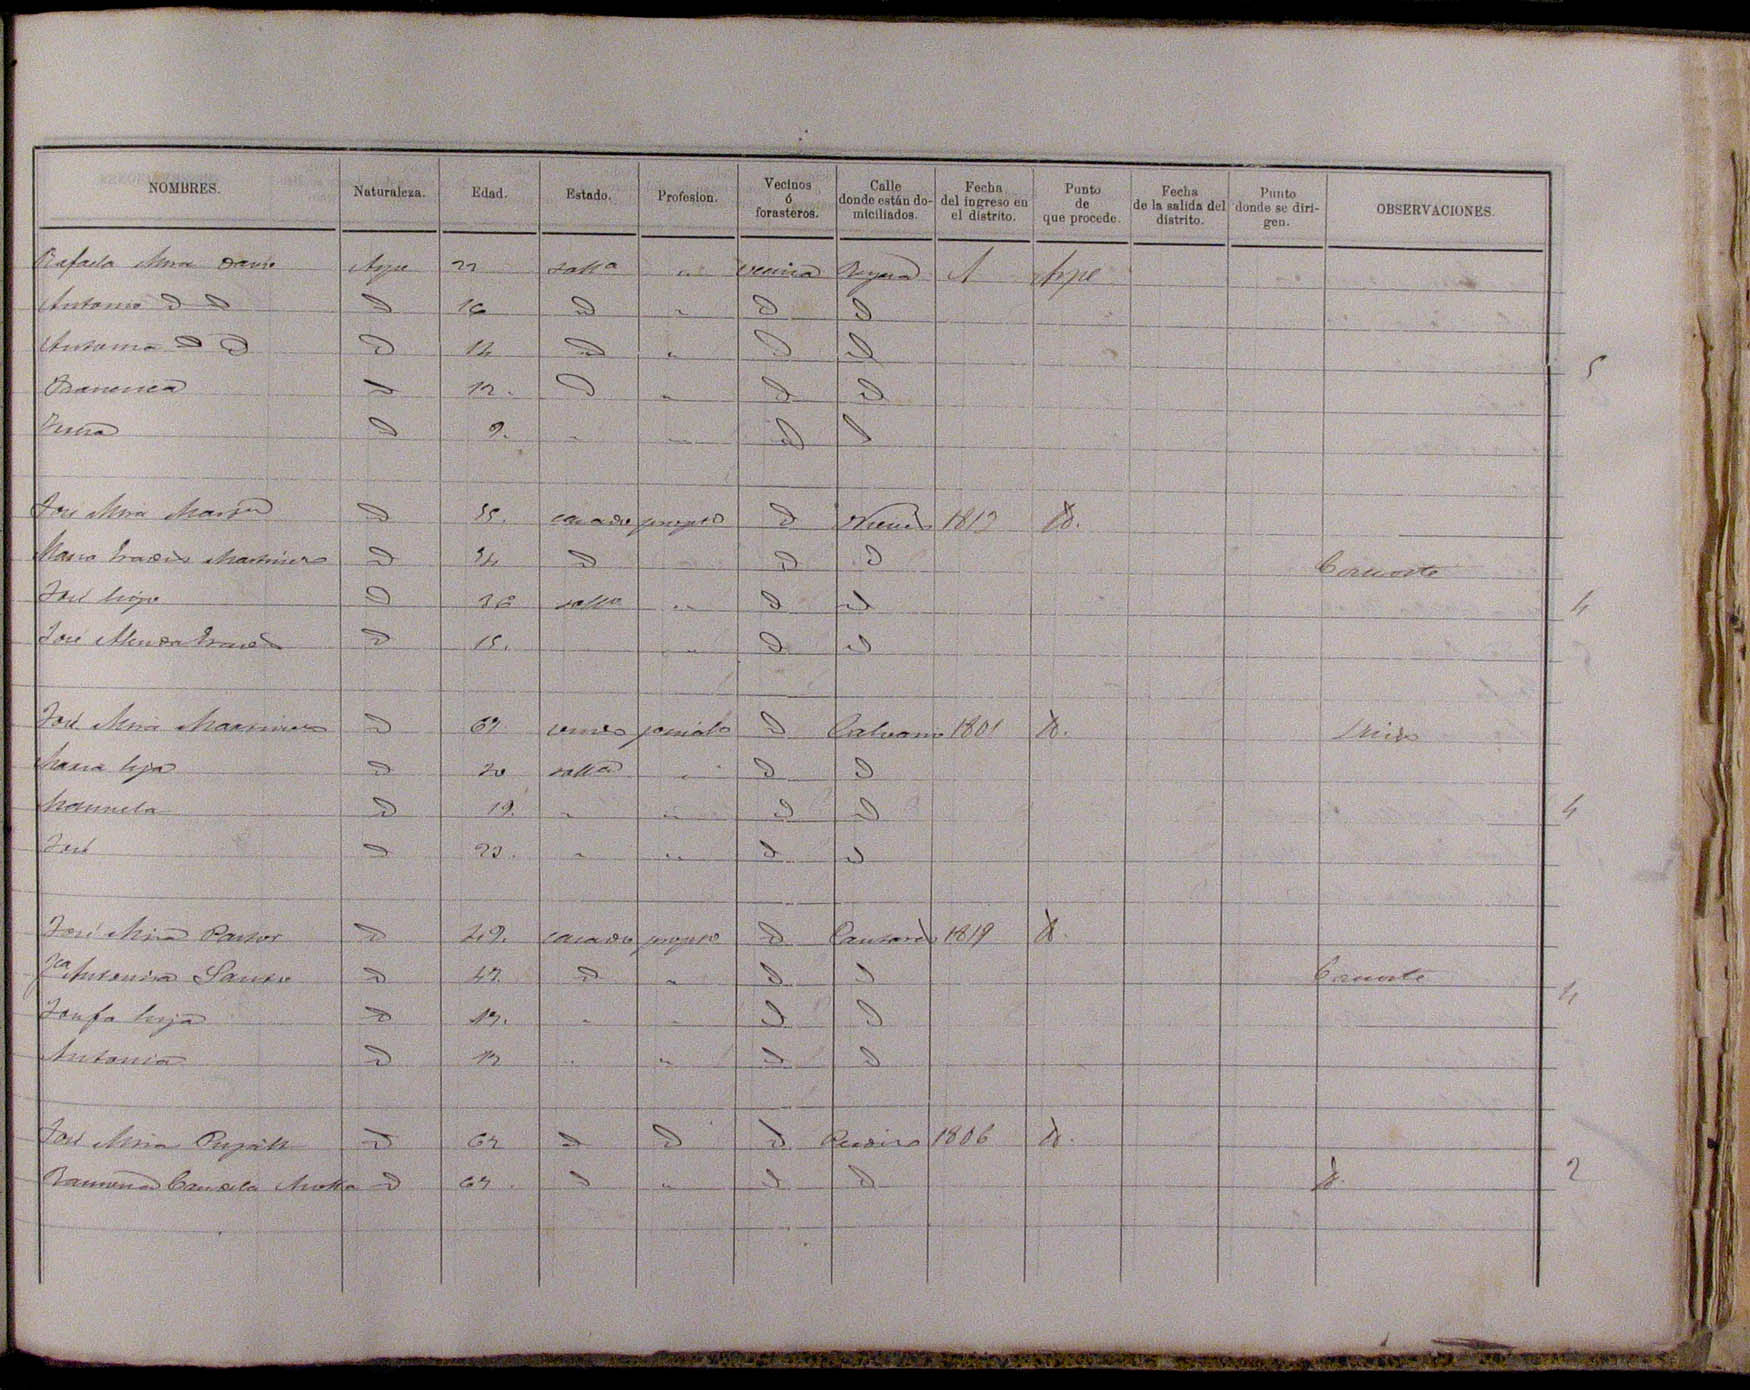 NOMBRES. Naturaleza. Edad. Estado. Profesion. Vecinos ó forasteros. Calle donde están domiciliados. Fecha del ingreso en el distrito. Punto de que procede. Fecha de la salida del distrito. Punto donde se dirigen. OBSERVACIONES.
Rafaela Mira Aspe 22 solta " vecina A Aspe
Antonio D D D 16 D " D D
Antonia D D D 14 D " D D
5
Francisca D 12. D " D D
D 9. " " D D
José Mira D 55. casado propio D Nieves 1812 D.
Maria Martinez D 54 D D D Consorte
José hijo D 26 solto " D D
4
José D 15. " D D
José Mira Martinez D 67. jornalo D Calvario 1801 D.
Maria hija D 20 solta " D D
Manuela D 19. " " D D
4
José D 23. " " D D
José Mira Pastor D 49. casado propio D 1819 D.
Fca Antonia D 47. D " D D Consorte
4
Josefa hija D 17. " " D D
Antonia D 13 " " D D
José Mira Pujalte D 62 D D D 1806 D.
Ramona Candela D 67. D " D D D.
2